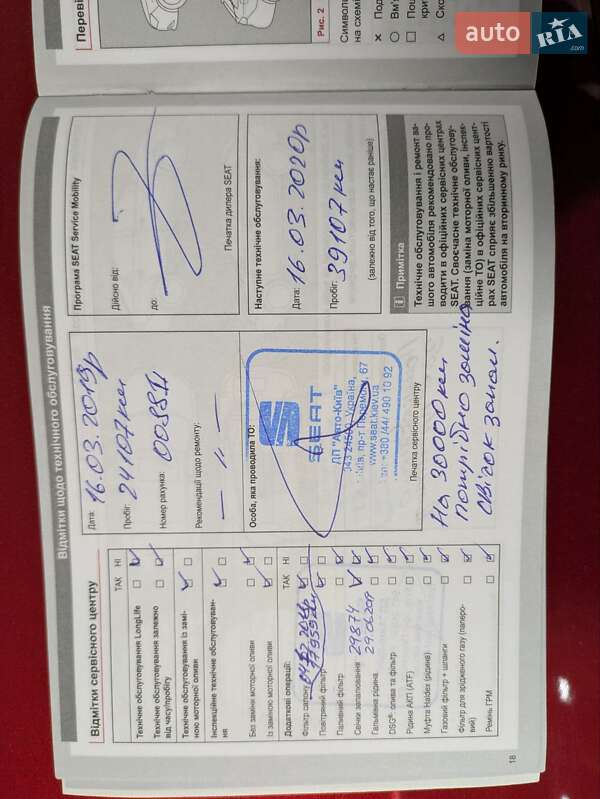 auto RIA .com
Перевi
Рис. 2
Символ
на схем
× Под
○ Вм'
□ Пош
кри
△ Ско
Відмітки щодо технічного обслуговування
Відмітки сервісного центру
ТАК НІ
Технічне обслуговування LongLife
Технічне обслуговування залежно
від часу/пробігу
Технічне обслуговування із замі-
ною моторної оливи
Інспекційне технічне обслуговуван-
ня
Без заміни моторної оливи
Із заміною моторної оливи
Додаткові операції:
ТАК НІ
Фільтр салону
Повітряний фільтр
Паливний фільтр
Свічки запалювання
29874
Гальмівна рідина
DSG® олива та фільтр
Рідина АКП (ATF)
Муфта Haldex (рідина)
Газовий фільтр + шланги
Фільтр для зрідженого газу (паперо-
вий)
Ремінь ГРМ
18
Дата: 16.03.2019р
Пробіг: 24107км
Номер рахунка:
Рекомендації щодо ремонту:
Особа, яка проводила ТО:
SEAT
ДП "Авто-Київ"
Україна,
пр-т Перемоги, 67
www.seat.kiev.ua
+380 /44/ 490 10 92
Печатка сервісного центру
На 30000 км
потрібно заміна
свічок запал.
Програма SEAT Service Mobility
Дійсно від:
до:
Печатка дилера SEAT
Наступне технічне обслуговування:
Дата: 16.03.2020р
Пробіг: 39107км
(залежно від того, що настає раніше)
i Примітка
Технічне обслуговування і ремонт ва-
шого автомобіля рекомендовано про-
водити в офіційних сервісних центрах
SEAT. Своєчасне технічне обслугову-
вання (заміна моторної оливи, інспек-
ційне ТО) в офіційних сервісних цент-
рах SEAT сприяє збільшенню вартості
автомобіля на вторинному ринку.